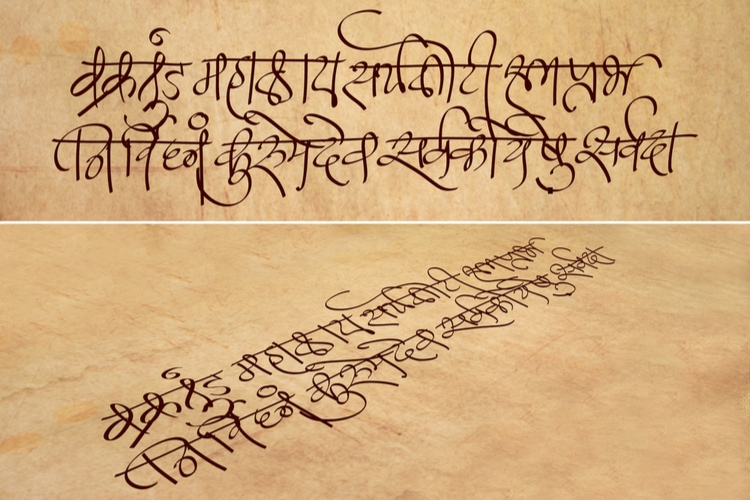 वक्रतुंड महाकाय सूर्यकोटी समप्रभ
निर्विघ्नं कुरुमेदेव सर्वकार्येषु सर्वदा
वक्रतुंड महाकाय सूर्यकोटी समप्रभ
निर्विघ्नं कुरुमेदेव सर्वकार्येषु सर्वदा